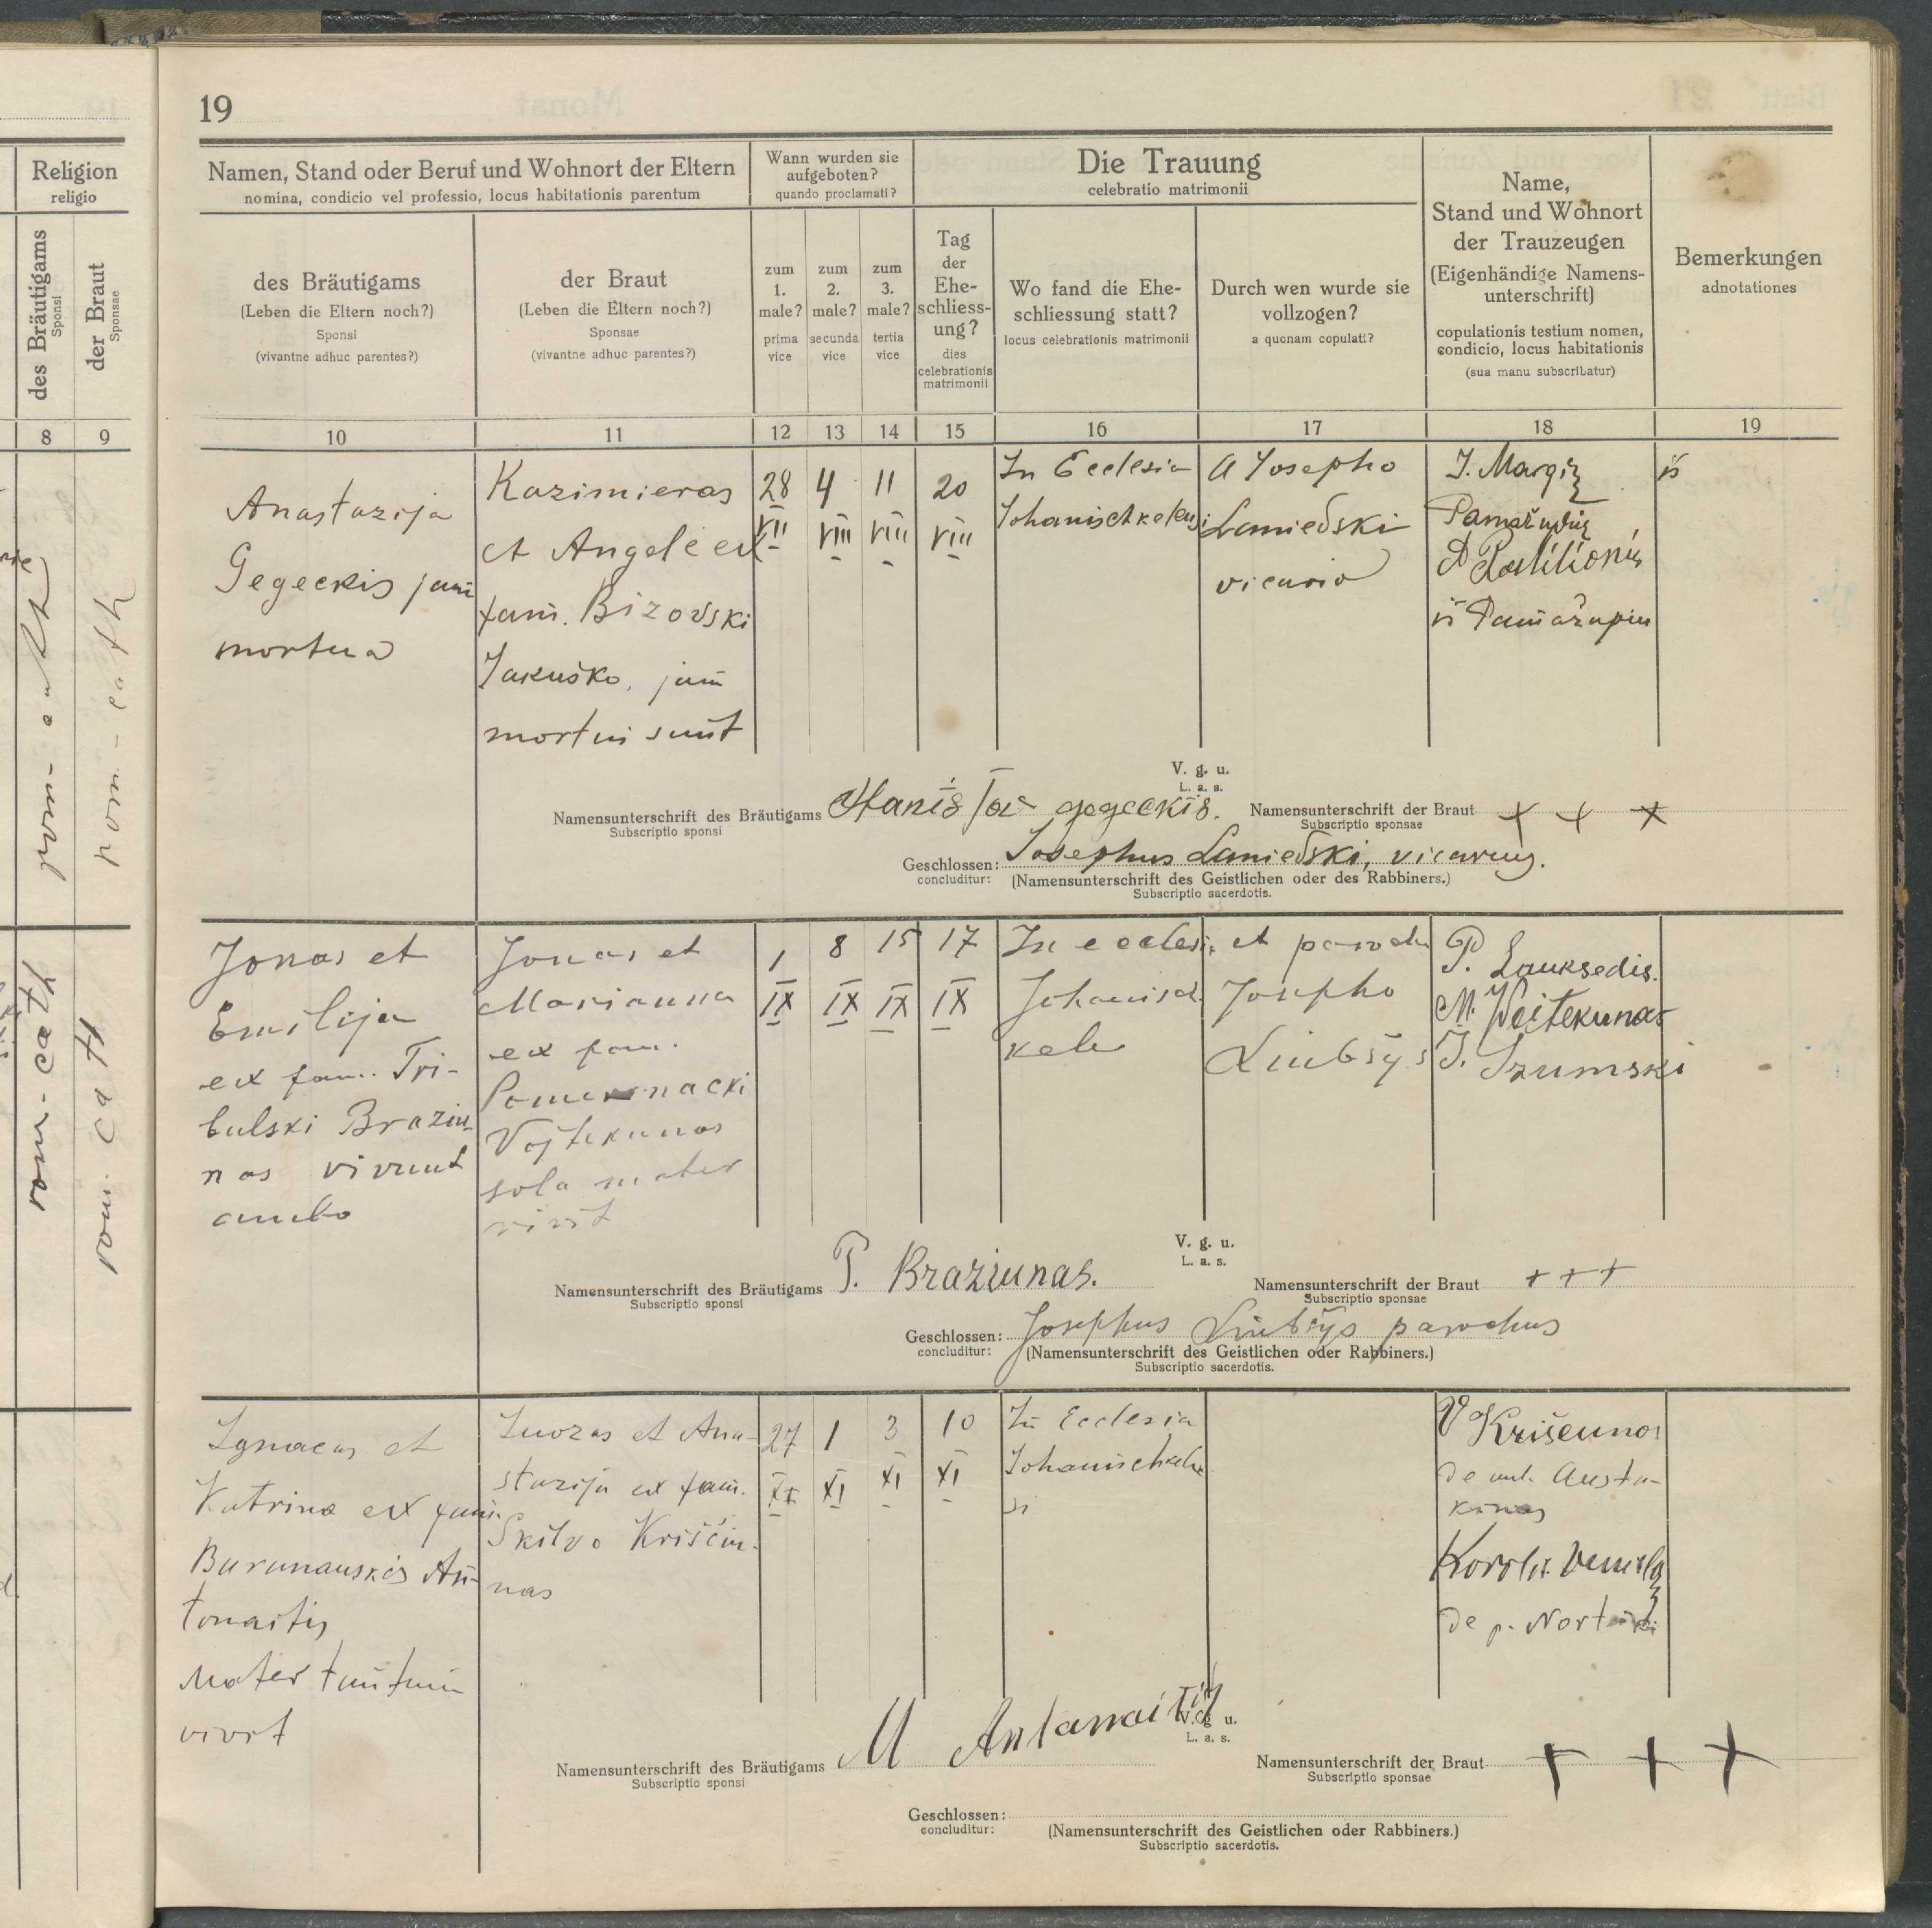 19
Religion
religio
des Bräutigams
Sponsi
der Braut
Sponsae
8
9
Namen, Stand oder Beruf und Wohnort der Eltern
nomina, condicio vel professio, locus habitationis parentum
des Bräutigams
(Leben die Eltern noch?)
Sponsi
(vivantne adhuc parentes?)
der Braut
(Leben die Eltern noch?)
Sponsae
(vivantne adhuc parentes?)
Wann wurden sie
aufgeboten?
quando proclamati?
zum
1.
male?
prima
vice
zum
2.
male?
secunda
vice
zum
3.
male?
tertia
vice
Die Trauung
celebratio matrimonii
Tag
der
Ehe-
schliess-
ung?
dies
celebrationis
matrimonii
Wo fand die Ehe-
schliessung statt?
locus celebrationis matrimonii
Durch wen wurde sie
vollzogen?
a quonam copulati?
Name,
Stand und Wohnort
der Trauzeugen
(Eigenhändige Namens-
unterschrift)
copulationis testium nomen,
condicio, locus habitationis
(sua manu subscribatur)
Bemerkungen
adnotationes
10 11 12 13 14 15 16 17 18 19
rom-cath
rom-cath
Anastazija
Gegeckis jam
mortua
Kazimieras
et Angele ex
fam. Bizovski
Jakuśko, jam
mortui sunt
28
VII
4
VIII
11
VIII
20
VIII
In Ecclesia
Johanischkelensi
a Josepho
Lamiedski
vicario
J. Margis
iš
A
iš
V. g. u.
L. a. s.
Namensunterschrift des Bräutigams gegeckis.
Subscriptio sponsi
Namensunterschrift der Braut + + +
Subscriptio sponsae
Geschlossen: Josephus Lamiedski, vicarius.
concluditur: (Namensunterschrift des Geistlichen oder des Rabbiners.)
Subscriptio sacerdotis.
rom-cath
rom. cath
Jonas et
Emilija
ex fam. Tri-
bulski Braziu-
nas vivunt
ambo
Jonas et
Marianna
ex fam.
Vojtekunas
sola mater
vivit
1
IX
8
IX
15
IX
17
IX
In ecclesia
Johanisch
kele
et parocho
Josepho
Liubšys
P. Lauksedis.
M. Woitekunas
J. Szumski
V. g. u.
L. a. s.
Namensunterschrift des Bräutigams P. Braziunas.
Subscriptio sponsi
Namensunterschrift der Braut + + +
Subscriptio sponsae
Geschlossen: Josephus Liubšys parochus
concluditur: (Namensunterschrift des Geistlichen oder Rabbiners.)
Subscriptio sacerdotis.
Ignacas et
Katrina ex fam.
Burunauskis An-
tonaitis
Mater tantum
vivit
Juozas et Ana-
stazija ex fam.
Skilvo Krisciu-
nas
27
1
XI
3
XI
10
XI
In Ecclesia
Johanischkele
si
V Krišeunos
de
de p.
M Antanaitis
V. g. u.
L. a. s.
Namensunterschrift des Bräutigams
Subscriptio sponsi
Namensunterschrift der Braut + + +
Subscriptio sponsae
Geschlossen:
concluditur: (Namensunterschrift des Geistlichen oder Rabbiners.)
Subscriptio sacerdotis.